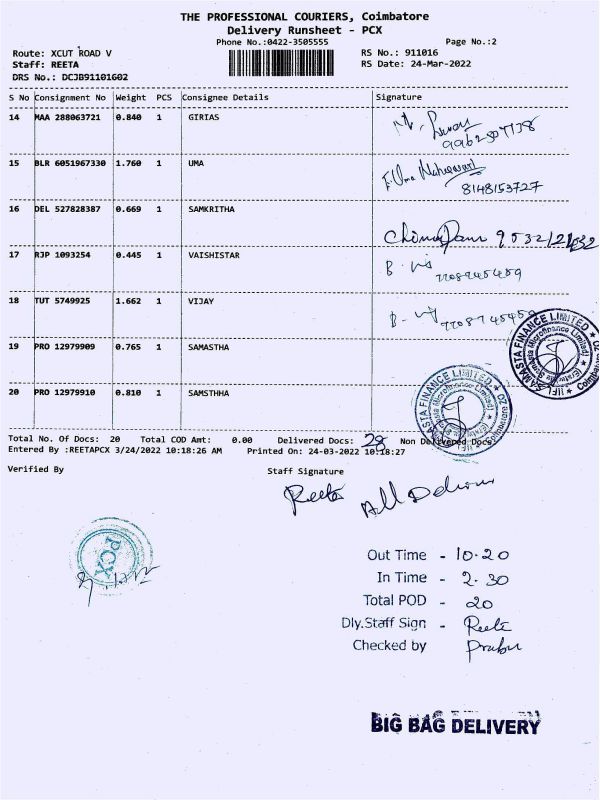 THE PROFESSIONAL COURIERS, Coimbatore
Delivery Runsheet - PCX
Phone No.:0422-3505555 Page No.:2
Route: XCUT ROAD V RS No.: 911016
Staff: REETA RS Date: 24-Mar-2022
DRS No.: DCJB91101602
S No Consignment No Weight PCS Consignee Details Signature
14 MAA 288063721 0.840 1 GIRIAS
15 BLR 6051967330 1.760 1 UMA
8148153727
16 DEL 527828387 0.669 1 SAMKRITHA
17 RJP 1093254 0.445 1 VAISHISTAR
18 TUT 5749925 1.662 1 VIJAY
19 PRO 12979909 0.765 1 SAMASTHA
20 PRO 12979910 0.810 1 SAMSTHHA
SAMASTA FINANCE LIMITED
SAMASTA FINANCE LIMITED
Total No. Of Docs: 20 Total COD Amt: 0.00 Delivered Docs: Non Delivered Docs
Entered By :REETAPCX 3/24/2022 10:18:26 AM Printed On: 24-03-2022 10:18:27
Verified By Staff Signature
Reeta
PCX
Out Time - 10.20
In Time - 2.30
Total POD - 20
Dly.Staff Sign - Reeta
Checked by Prabu
BIG BAG DELIVERY